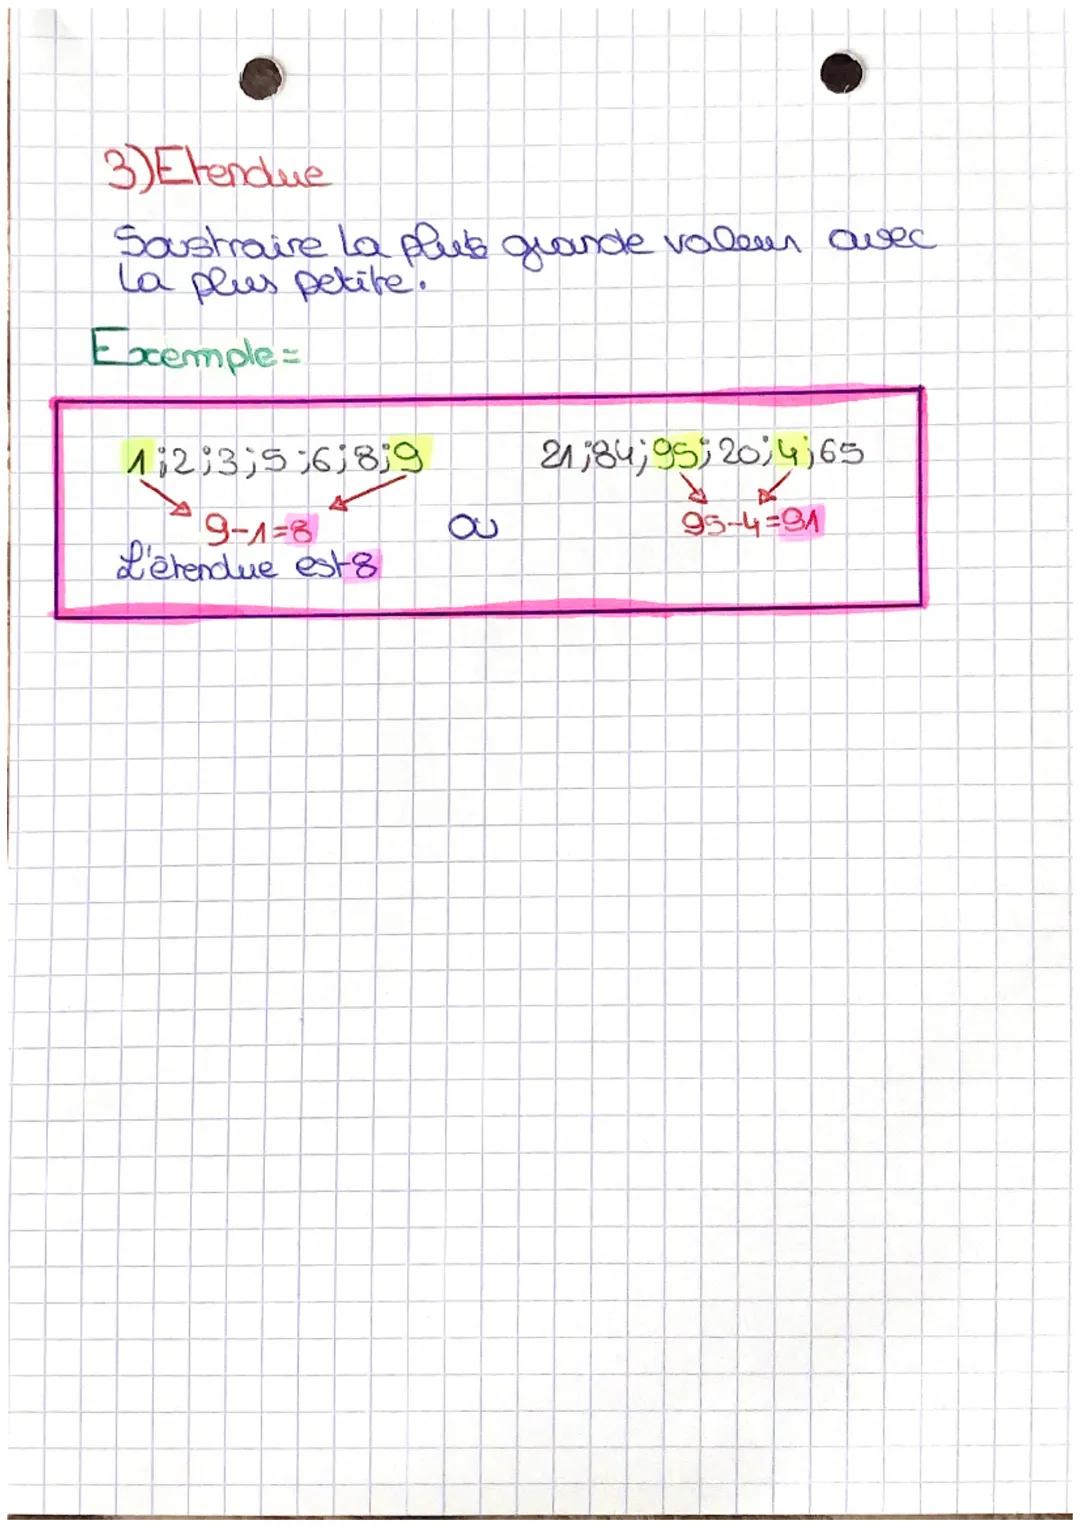 3) Etendue
Soustraire la plus grande valeur avec
la plus petite.
Exemple =
1;2;3;5;6;8;9 21;84;95;20;4;65
9-1=8 ou 95-4=91
L'étendue est 8